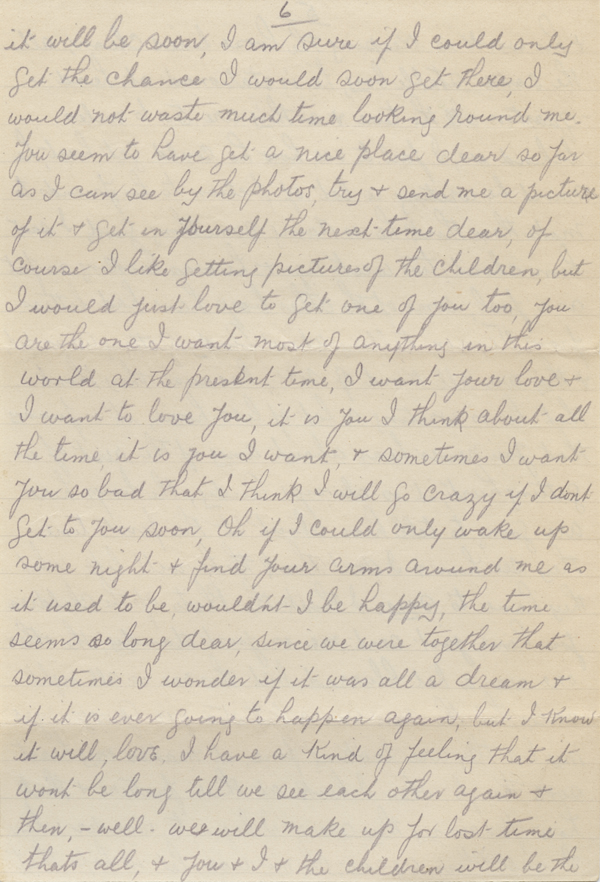 6
it will be soon, I am sure if I could only
get the chance I would soon get there, I
would not waste much time looking round me.
You seem to have get a nice place dear so far
as I can see by the photos, try & send me a picture
of it & get in yourself the next time dear, of
course I like getting pictures of the children, but
I would just love to get one of you too, you
are the one I want most of anything in this
world at the present time, I want your love &
I want to love you, it is you I think about all
the time, it is you I want, & sometimes I want
you so bad that I think I will go crazy if I dont
get to you soon, Oh if I could only wake up
some night & find your arms around me as
it used to be, would'nt I be happy, the time
seems so long dear, since we were together that
sometimes I wonder if it was all a dream &
if it is ever going to happen again, but I know
it will, love. I have a kind of feeling that it
wont be long till we see each other again &
then, - well - we will make up for lost time
thats all, & you & I & the children will be the